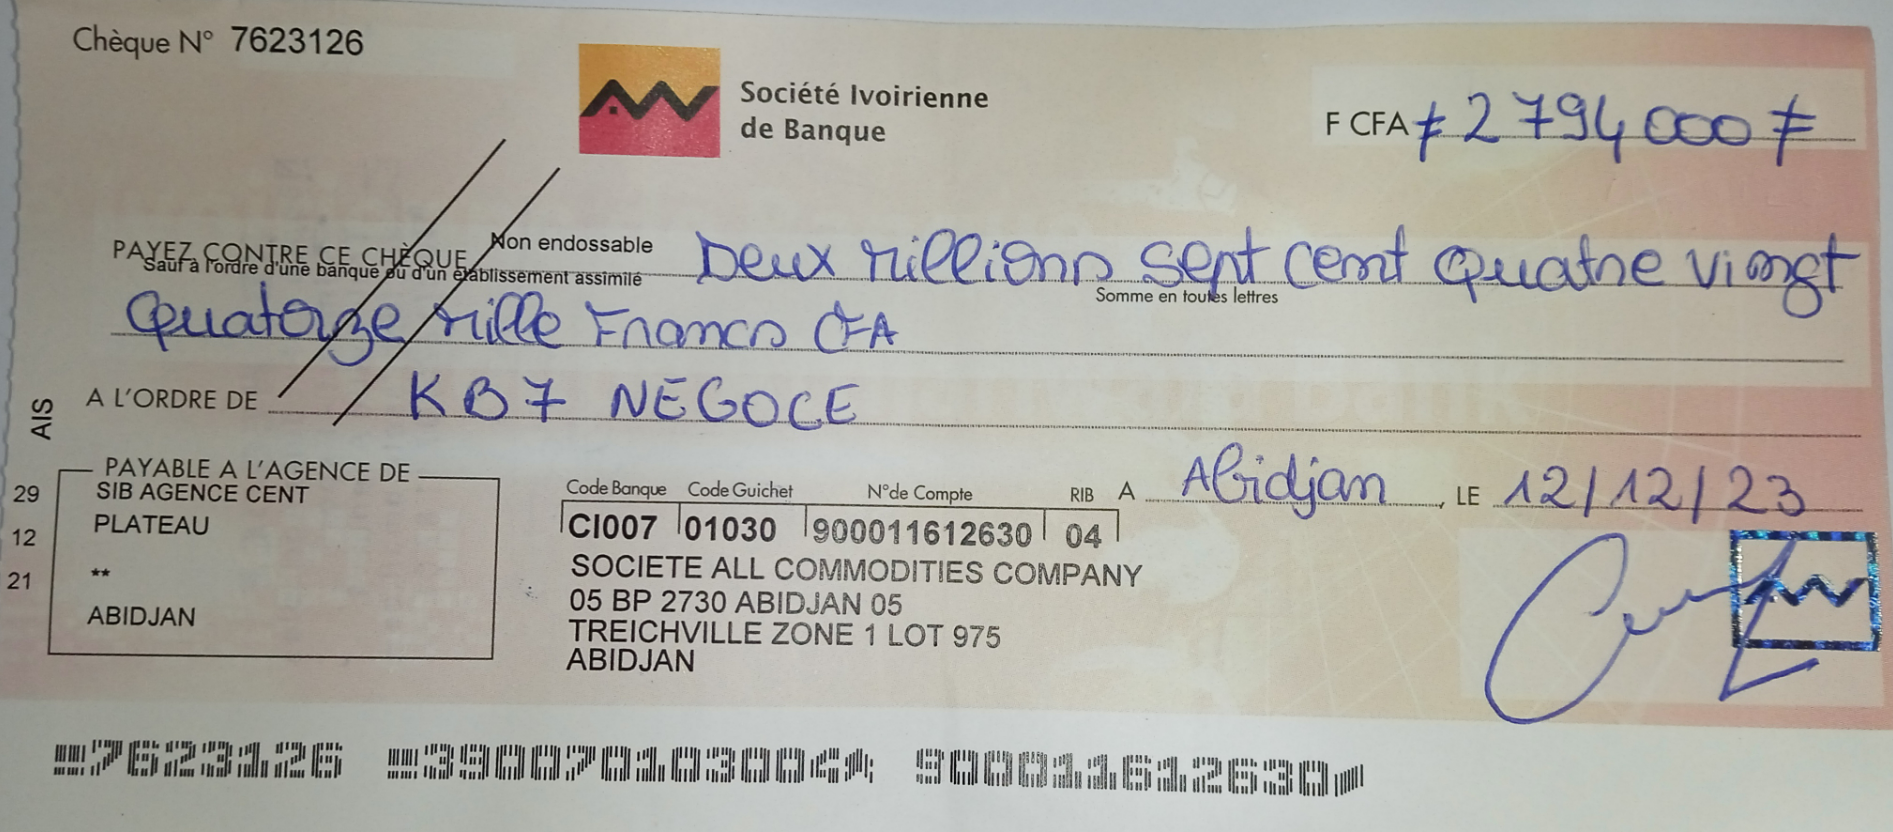 Chèque N° 7623126
Société Ivoirienne
de Banque
F CFA ≠ 2 794 000 ≠
PAYEZ CONTRE CE CHÈQUE Non endossable Deux millions sept cent quatre vingt
Sauf à l'ordre d'une banque ou d'un établissement assimilé
Somme en toutes lettres
quatorze mille Francs CFA
A L'ORDRE DE KB7 NEGOCE
AIS
PAYABLE A L'AGENCE DE
29 SIB AGENCE CENT
12 PLATEAU
21 **
ABIDJAN
Code Banque Code Guichet N°de Compte RIB
CI007 01030 900011612630 04
SOCIETE ALL COMMODITIES COMPANY
05 BP 2730 ABIDJAN 05
TREICHVILLE ZONE 1 LOT 975
ABIDJAN
A Abidjan, LE 12/12/23
7623126 390070103004 900011612630